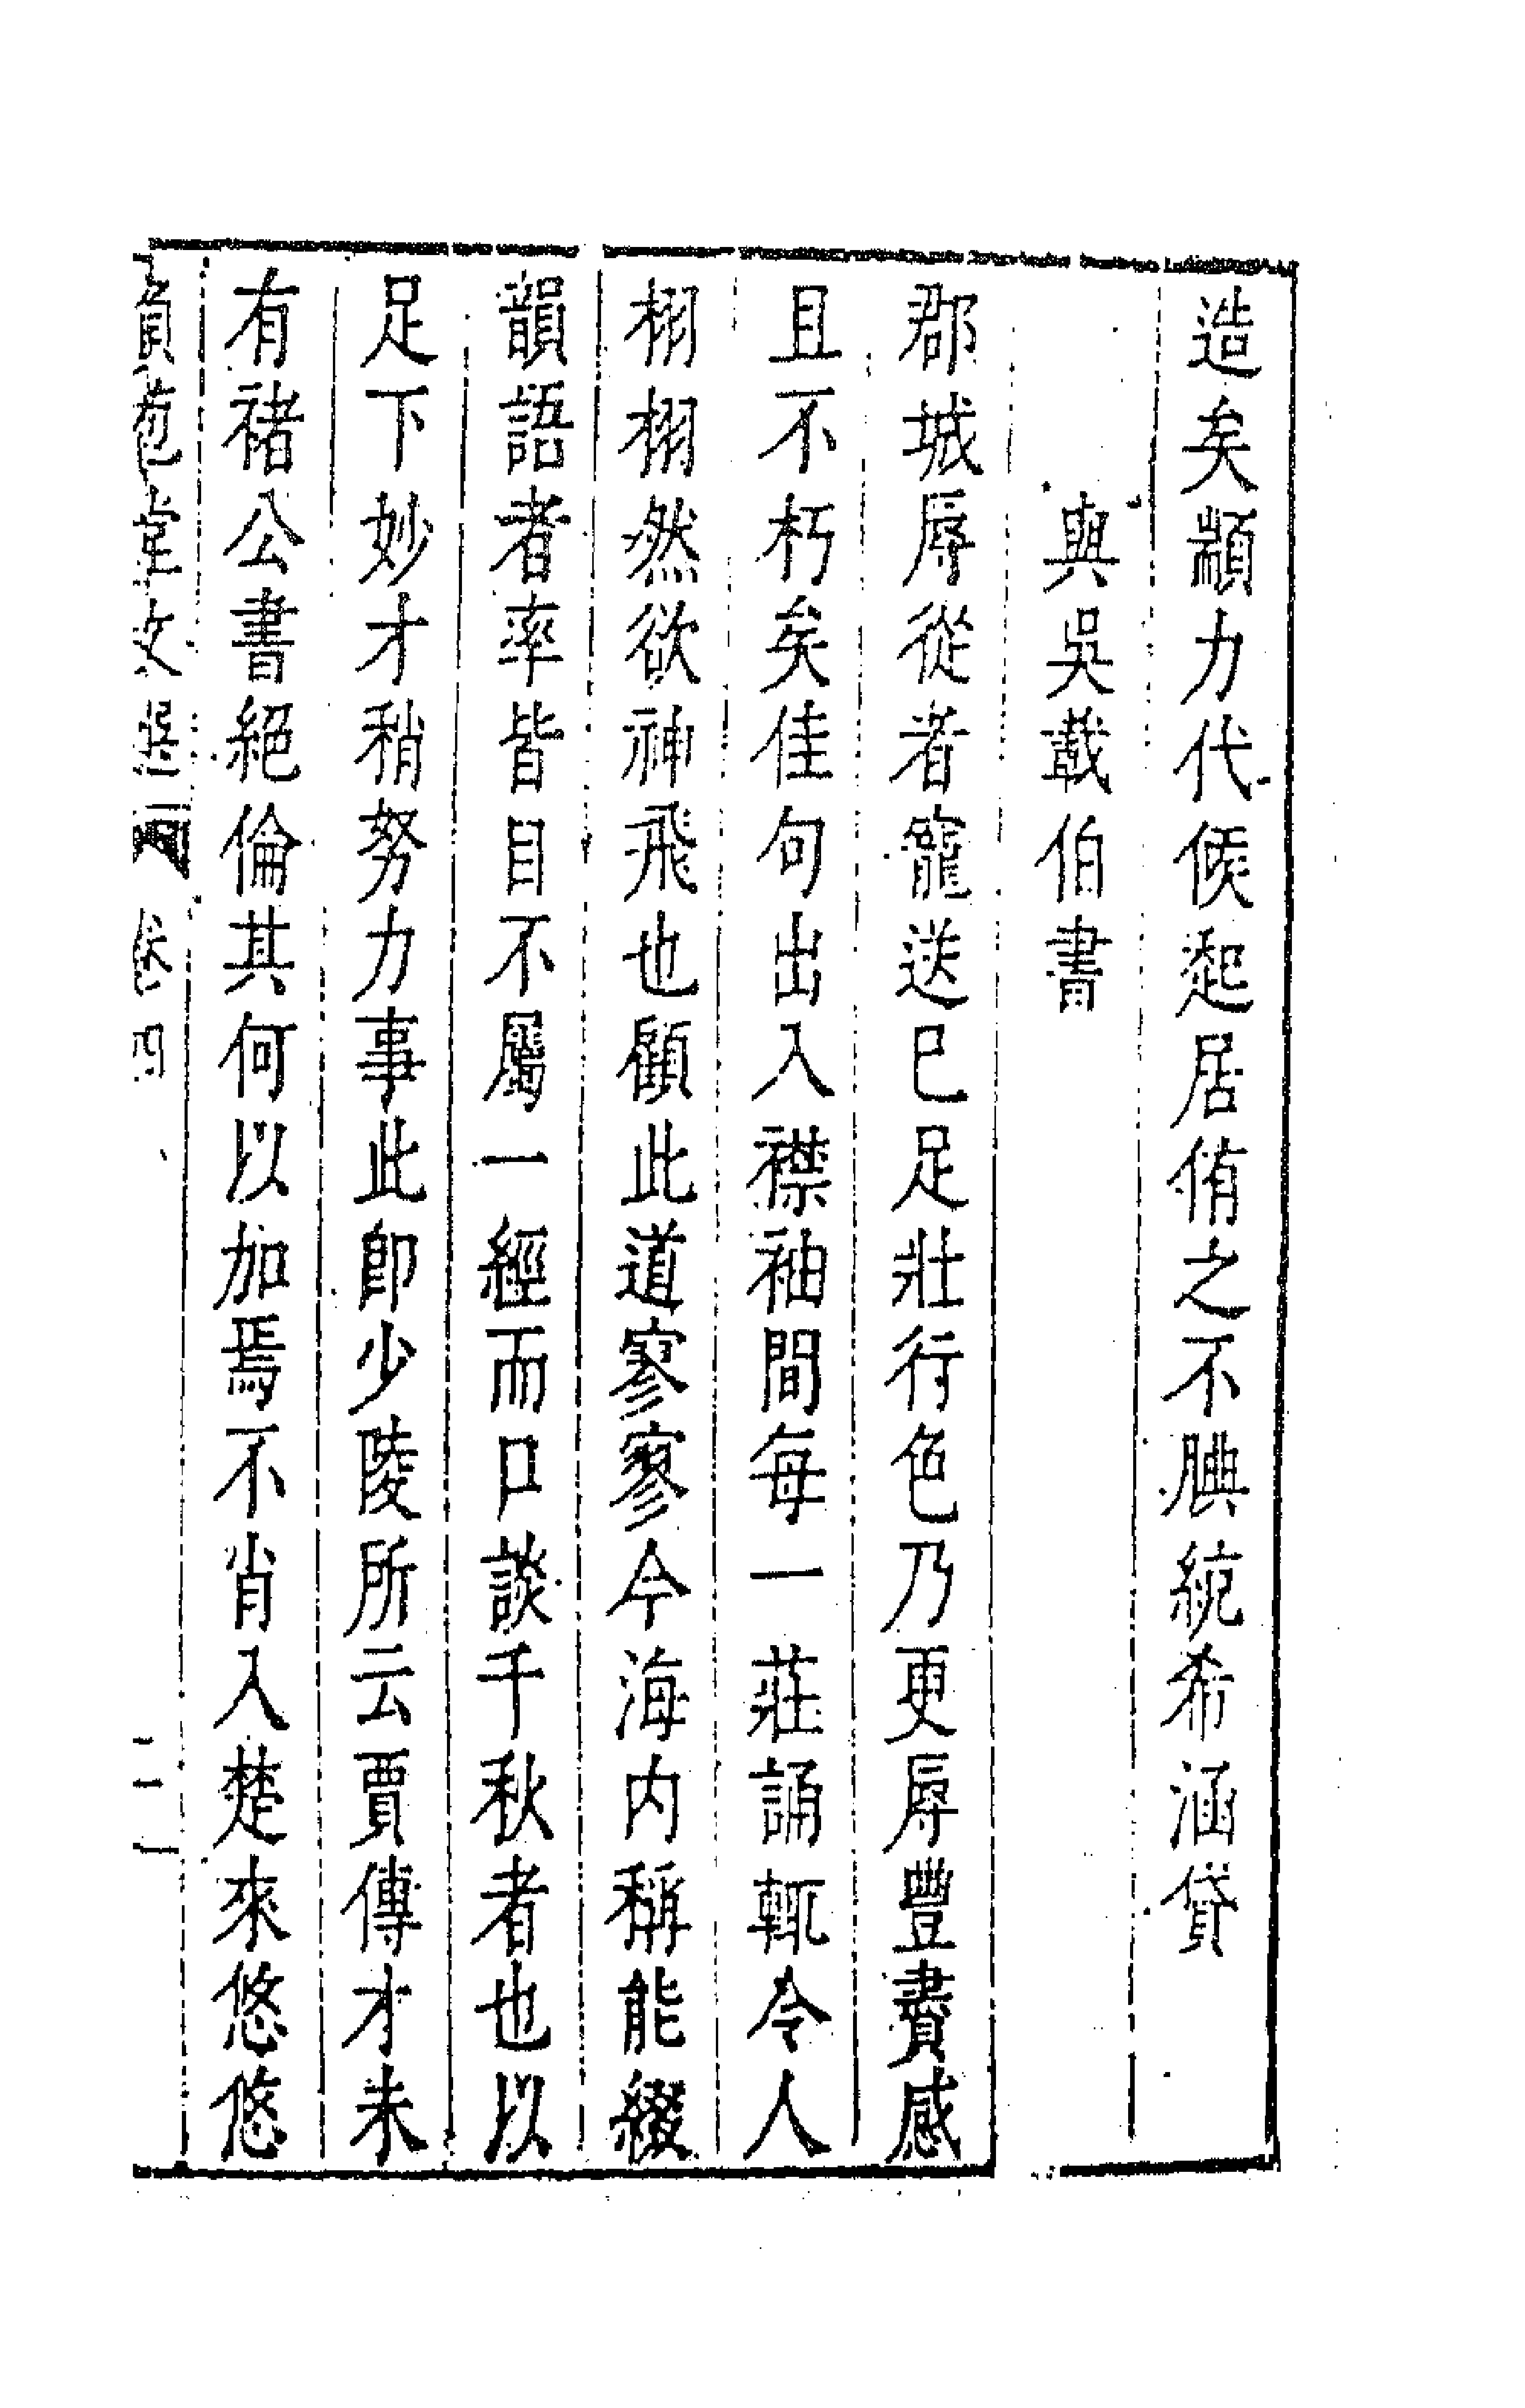 造矣顓力代候起居侑之不腆統希涵貸
與吳載伯書
郡城辱從者寵送已足壯行色乃更辱豐賮感
且不朽矣佳句出入襟袖間每一莊誦輒令人
栩栩然欲神飛也顧此道寥寥今海內稱能綴
韻語者率皆目不屬一經而口談千秋者也以
足下妙才稍努力事此卽少陵所云賈傅才未
有褚公書絕倫其何以加焉不肖入楚來悠悠
負苞堂文選 卷四